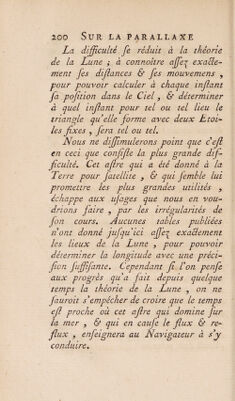 200 SUR LA PARALLAXE
La difficulté se réduit à la théorie
de la Lune ; à connoître assez exacte-
ment ses distances & ses mouvemens ,
pour pouvoir calculer à chaque instant
sa position dans le Ciel , & déterminer
à quel instant pour tel ou tel lieu le
triangle qu'elle forme avec deux Etoi-
les fixes , sera tel ou tel.
Nous ne dissimulerons point que c'est
en ceci que consiste la plus grande dif-
ficulté. Cet astre qui a été donné à la
Terre pour satellite , & qui semble lui
promettre les plus grandes utilités ,
échappe aux usages que nous en vou-
drions faire , par les irrégularités de
son cours. Aucunes tables publiées
n'ont donné jusqu'ici assez exactement
les lieux de la Lune , pour pouvoir
déterminer la longitude avec une préci-
sion suffisante. Cependant si l'on pense
aux progrès qu'a fait depuis quelque
temps la théorie de la Lune , on ne
sauroit s'empécher de croire que le temps
est proche où cet astre qui domine sur
la mer , & qui en cause le flux & re-
flux , enseignera au Navigateur à s'y
conduire.